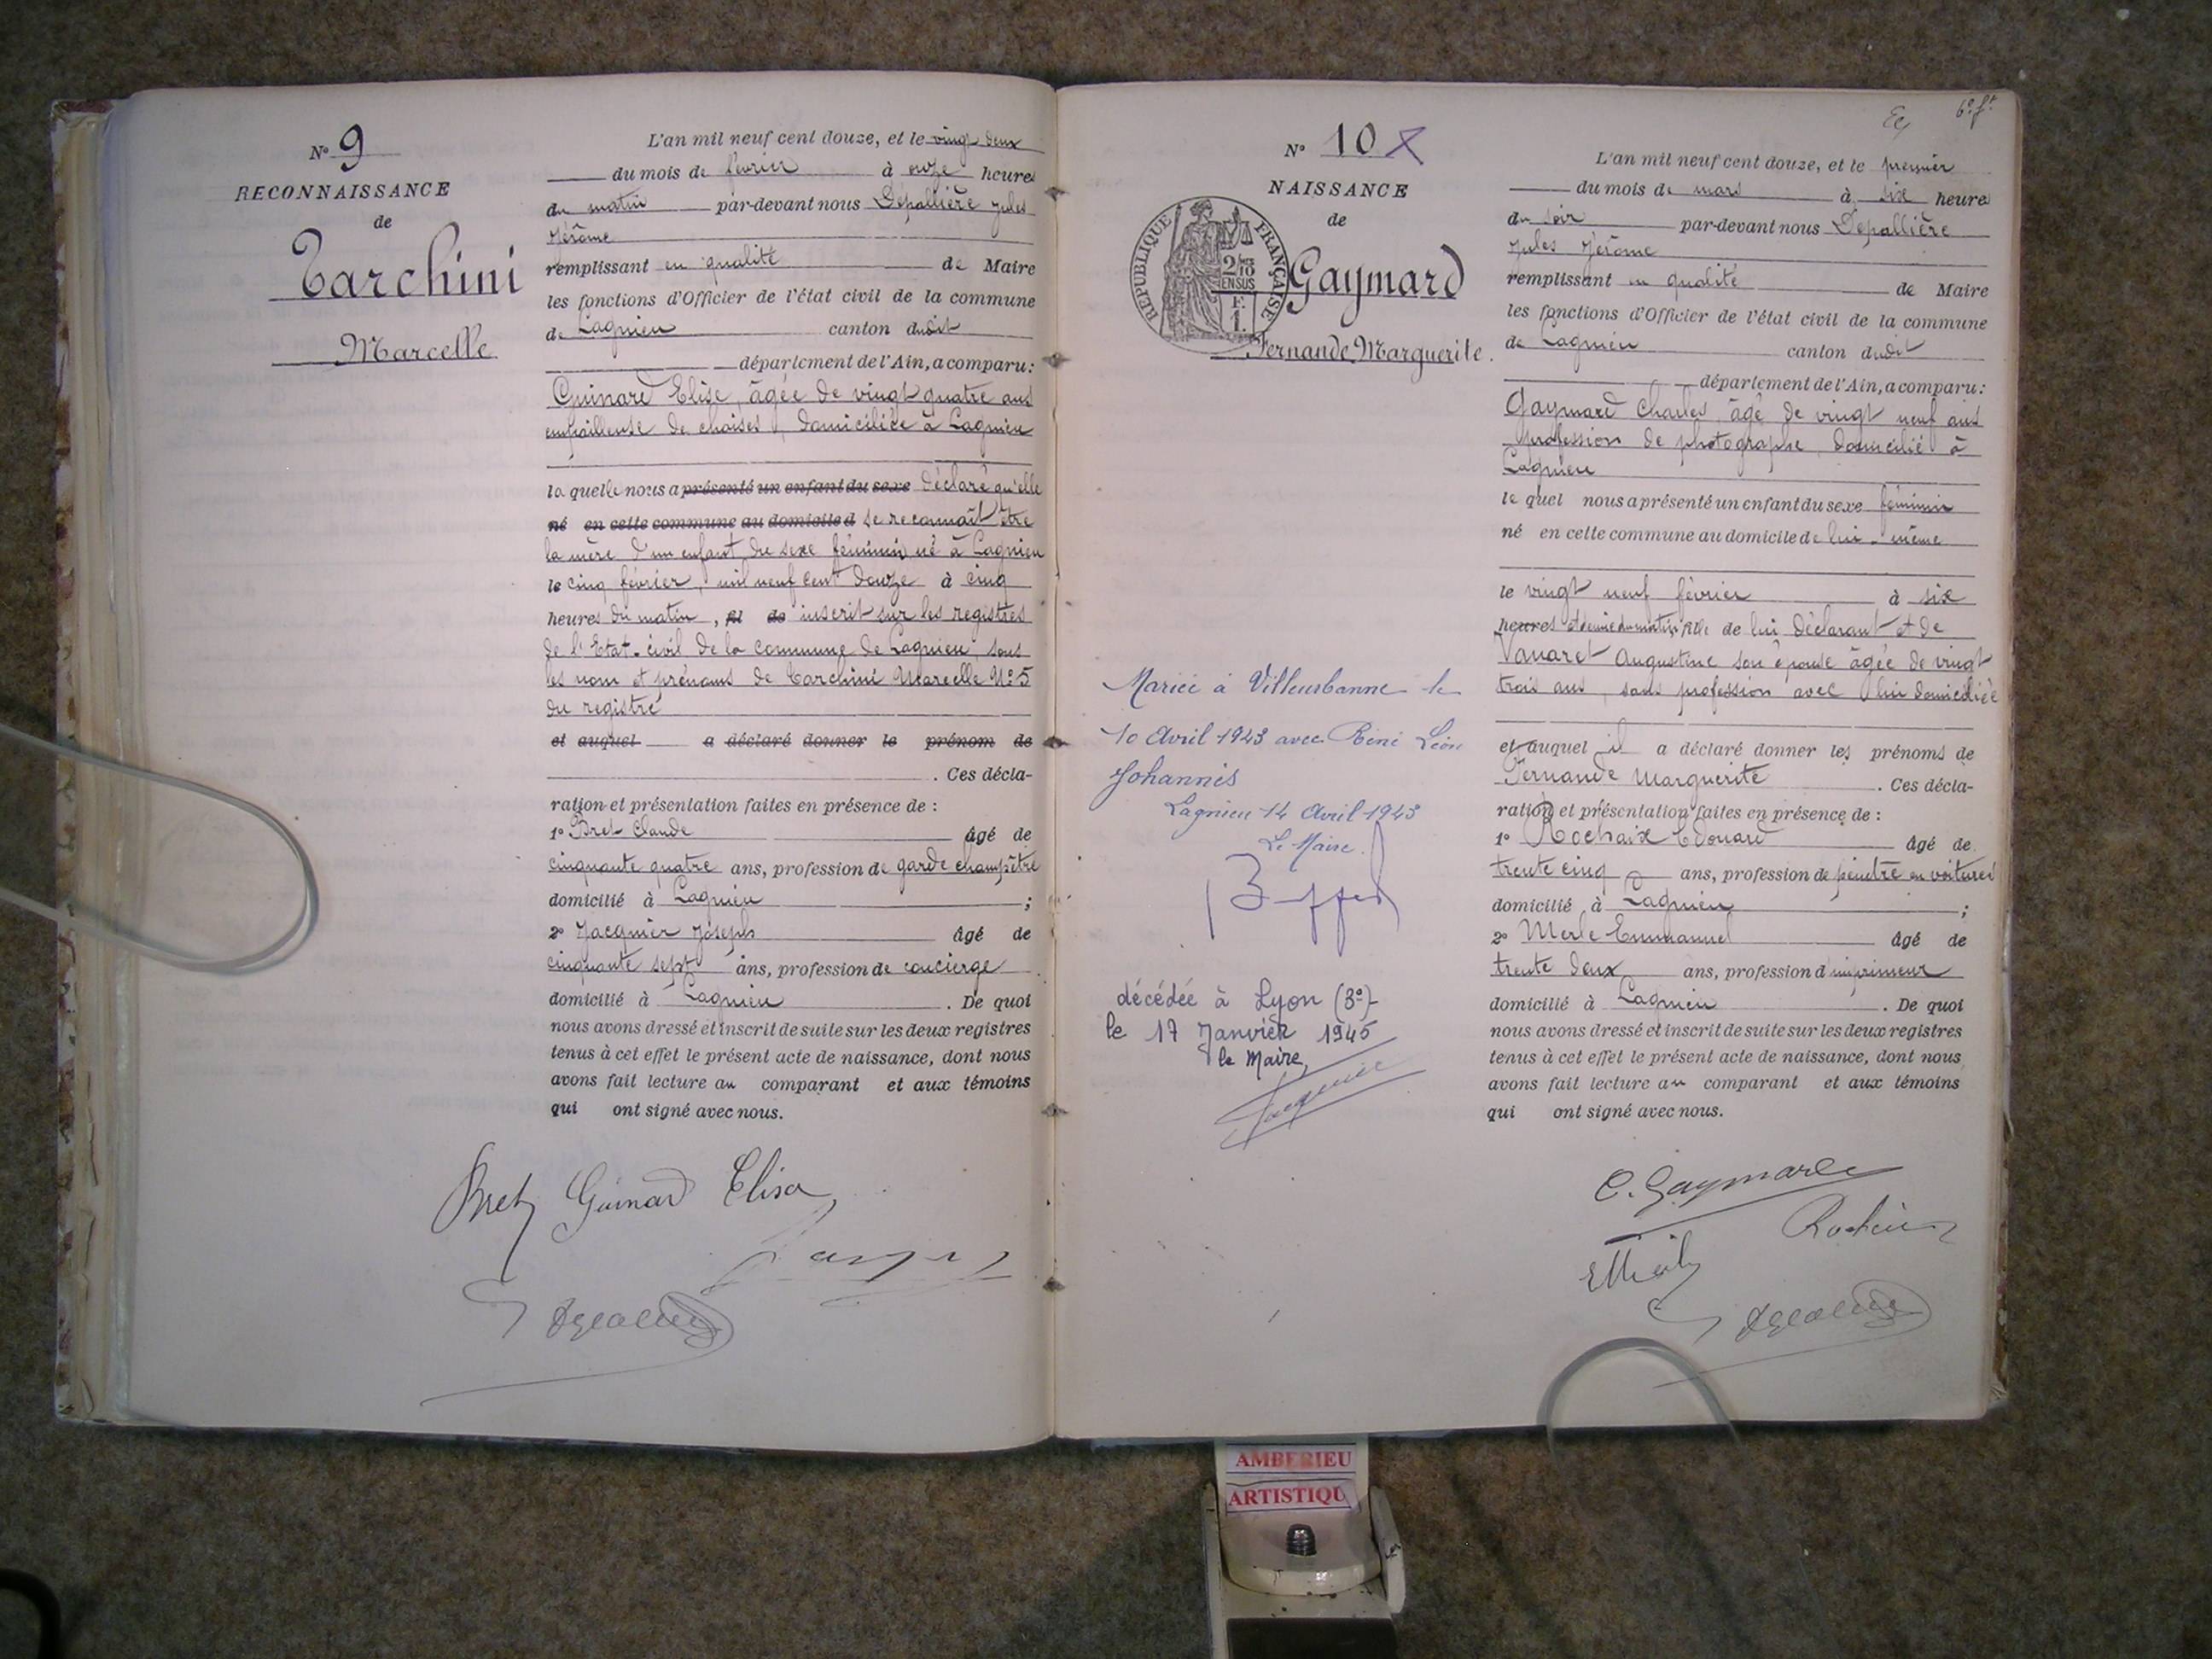 N° 9
RECONNAISSANCE
de
Tarchini
Marcelle
L'an mil neuf cent douze, et le vingt deux
du mois de février à onze heures
du matin par-devant nous Dépallière Jules
Jérôme
remplissant en qualité de Maire
les fonctions d'Officier de l'état civil de la commune
de Lagnieu canton dudit
département de l'Ain, a comparu:
Guinard Elise, âgée de vingt quatre ans
empailleuse de chaises, domiciliée à Lagnieu
la quelle nous a présenté un enfant du sexe déclaré qu'elle
né en cette commune au domicile d se reconnaît être
la mère d'un enfant du sexe féminin né à Lagnieu
le cinq février, mil neuf cent douze à cinq
heures du matin, fil de inscrit sur les registres
de l'Etat-civil de la commune de Lagnieu, sous
les nom et prénoms de Tarchini Marcelle N° 5
du registre
et auquel a déclaré donner le prénom de
. Ces décla-
ration et présentation faites en présence de :
1° Bret Claude âgé de
cinquante quatre ans, profession de garde champêtre
domicilié à Lagnieu ;
2° Jacquier Joseph âgé de
cinquante sept ans, profession de concierge
domicilié à Lagnieu . De quoi
nous avons dressé et inscrit de suite sur les deux registres
tenus à cet effet le présent acte de naissance, dont nous
avons fait lecture au comparant et aux témoins
qui ont signé avec nous.
Bret Guinard Elisa
6e ft
N° 10
NAISSANCE
de
REPUBLIQUE FRANÇAISE
2/10 EN SUS
F.
1.
Gaymard
Fernande, Marguerite.
Mariée à Villeurbanne le
10 Avril 1943 avec Réné Léon
Johannès
Lagnieu 14 Avril 1943
Le Maire.
décédée à Lyon (3e)
le 17 Janvier 1945
le Maire,
L'an mil neuf cent douze, et le premier
du mois de mars à six heures
du soir par-devant nous Dépallière
Jules Jérôme
remplissant en qualité de Maire
les fonctions d'Officier de l'état civil de la commune
de Lagnieu canton dudit
département de l'Ain, a comparu:
Gaymard Charles, âgé de vingt neuf ans
profession de photographe, domicilié à
Lagnieu
le quel nous a présenté un enfant du sexe féminin
né en cette commune au domicile de lui-même
le vingt neuf février à six
heures et demie du matin, fille de lui déclarant et de
Vanaret Augustine son épouse âgée de vingt
trois ans, sans profession avec lui domiciliée
et auquel il a déclaré donner les prénoms de
Fernande Marguerite . Ces décla-
ration et présentation faites en présence de :
1° Rochaix Edouard âgé de
trente cinq ans, profession de peintre en voitures
domicilié à Lagnieu ;
2° Merle Emmanuel âgé de
trente deux ans, profession d'imprimeur
domicilié à Lagnieu . De quoi
nous avons dressé et inscrit de suite sur les deux registres
tenus à cet effet le présent acte de naissance, dont nous
avons fait lecture au comparant et aux témoins
qui ont signé avec nous.
C. Gaymard
Rochaix
AMBERIEU
ARTISTIQU